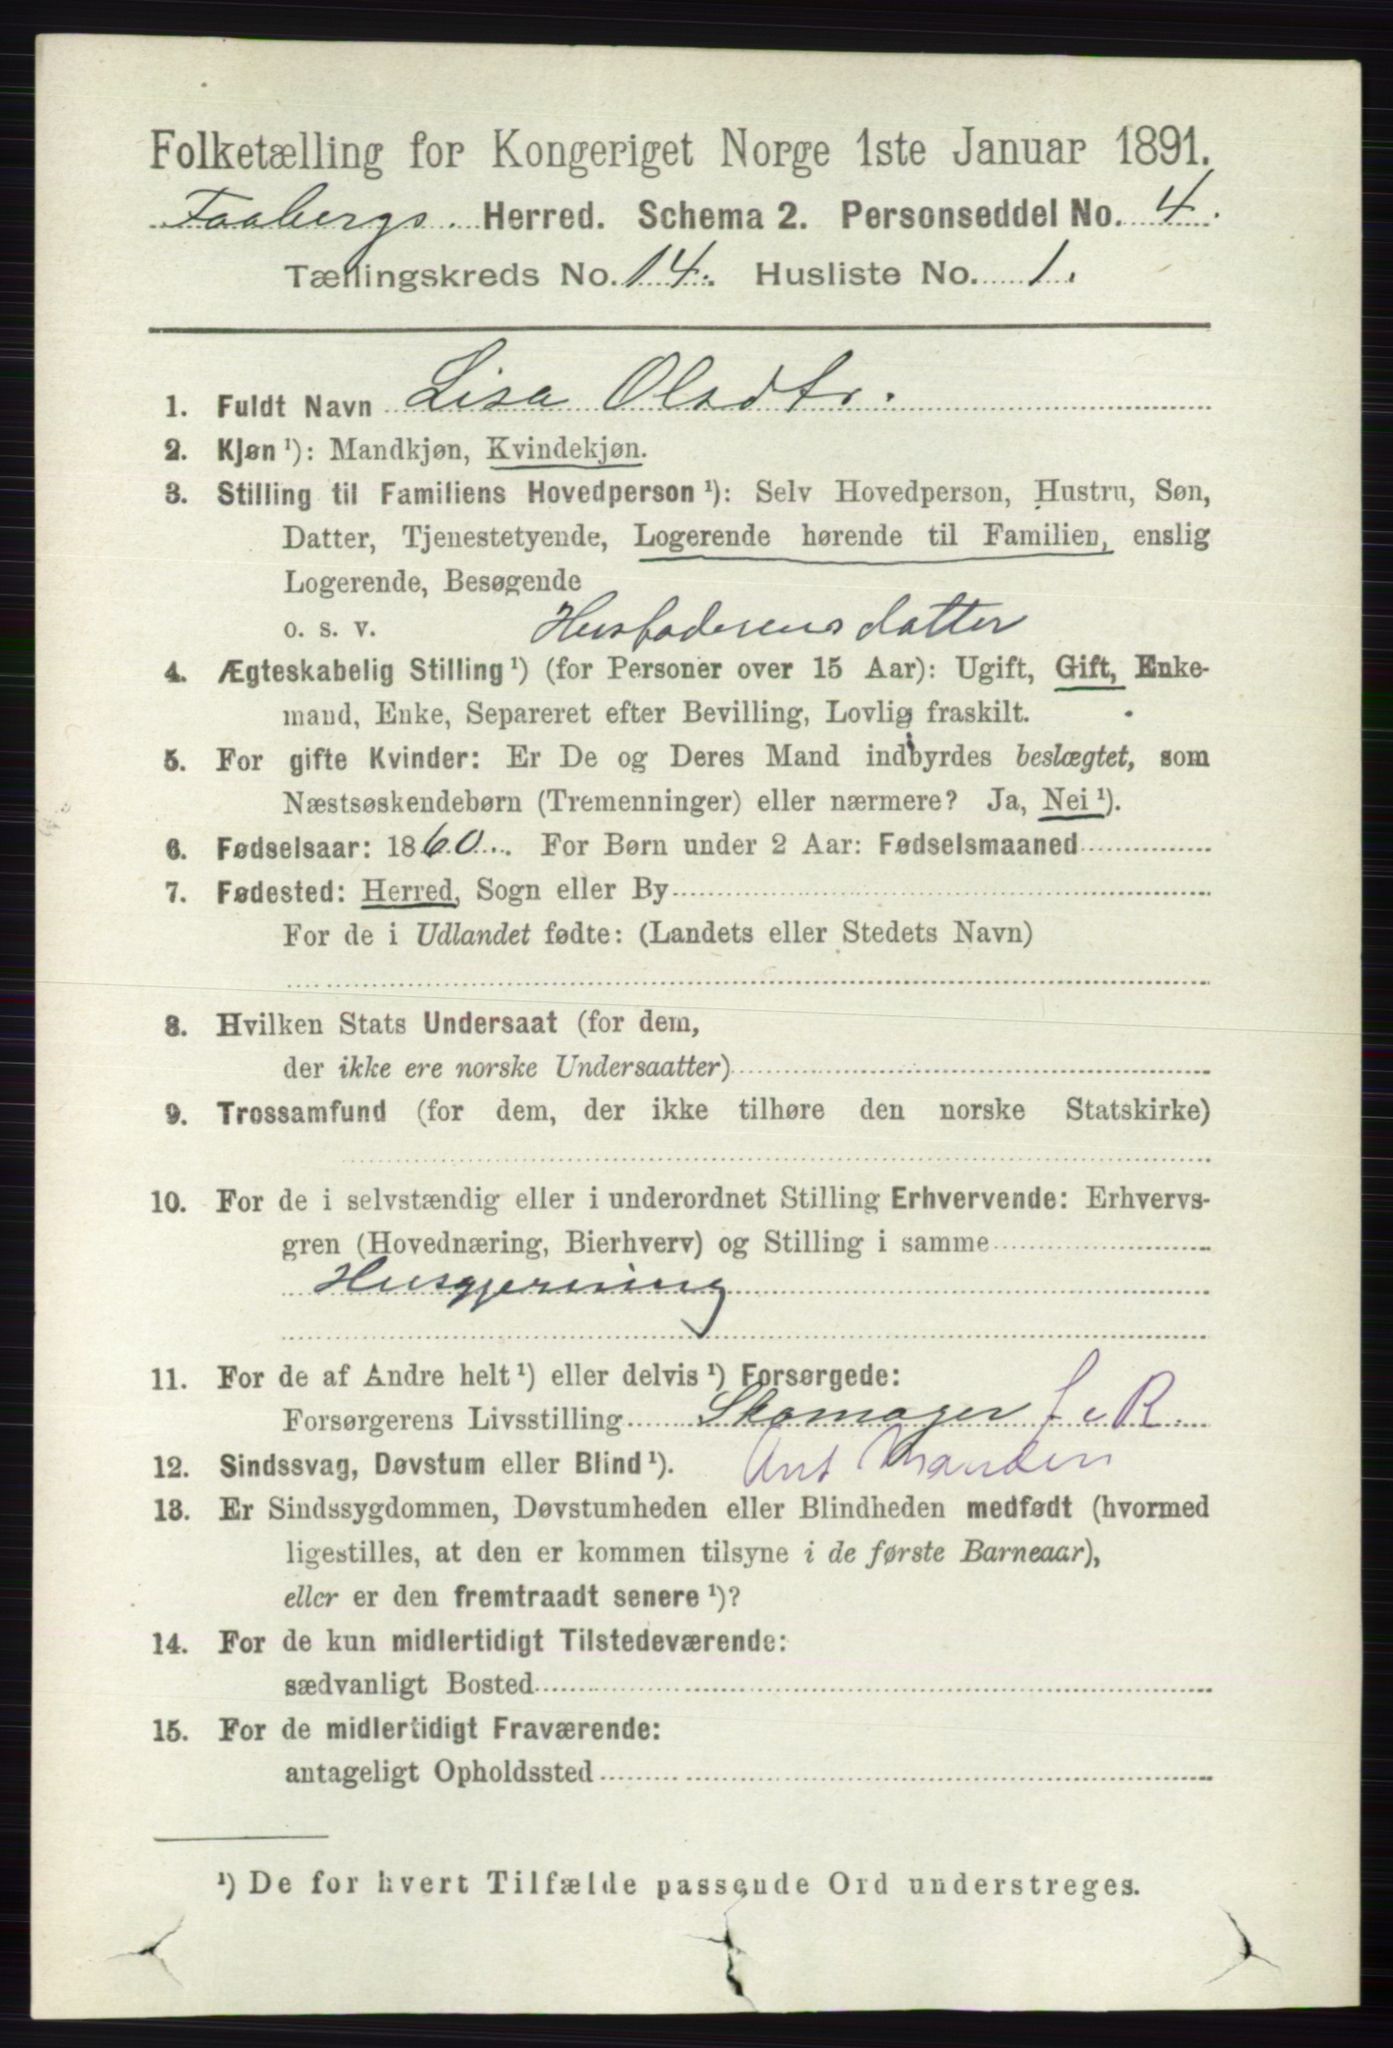 Folketælling for Kongeriget Norge 1ste Januar 1891.
Faabergs Herred. Schema 2. Personseddel No. 4.
Tællingskreds No. 14. Husliste No. 1.
1. Fuldt Navn Lisa Olsdtr.
2. Kjøn ¹): Mandkjøn, Kvindekjøn.
3. Stilling til Familiens Hovedperson ¹): Selv Hovedperson, Hustru, Søn,
Datter, Tjenestetyende, Logerende hørende til Familien, enslig
Logerende, Besøgende
o. s. v. Husfaderens datter
4. Ægteskabelig Stilling ¹) (for Personer over 15 Aar): Ugift, Gift, Enke-
mand, Enke, Separeret efter Bevilling, Lovlig fraskilt.
5. For gifte Kvinder: Er De og Deres Mand indbyrdes beslægtet, som
Næstsøskendebørn (Tremenninger) eller nærmere? Ja, Nei ¹).
6. Fødselsaar: 1860. For Børn under 2 Aar: Fødselsmaaned
7. Fødested: Herred, Sogn eller By
For de i Udlandet fødte: (Landets eller Stedets Navn)
8. Hvilken Stats Undersaat (for dem,
der ikke ere norske Undersaatter)
9. Trossamfund (for dem, der ikke tilhøre den norske Statskirke)
10. For de i selvstændig eller i underordnet Stilling Erhvervende: Erhvervs-
gren (Hovednæring, Bierhverv) og Stilling i samme
Husgjerning
11. For de af Andre helt ¹) eller delvis ¹) Forsørgede:
Forsørgerens Livsstilling Skomager f. e R.
12. Sindssvag, Døvstum eller Blind ¹). Ant Manden
13. Er Sindssygdommen, Døvstumheden eller Blindheden medfødt (hvormed
ligestilles, at den er kommen tilsyne i de første Barneaar),
eller er den fremtraadt senere ¹)?
14. For de kun midlertidigt Tilstedeværende:
sædvanligt Bosted
15. For de midlertidigt Fraværende:
antageligt Opholdssted
¹) De for hvert Tilfælde passende Ord understreges.